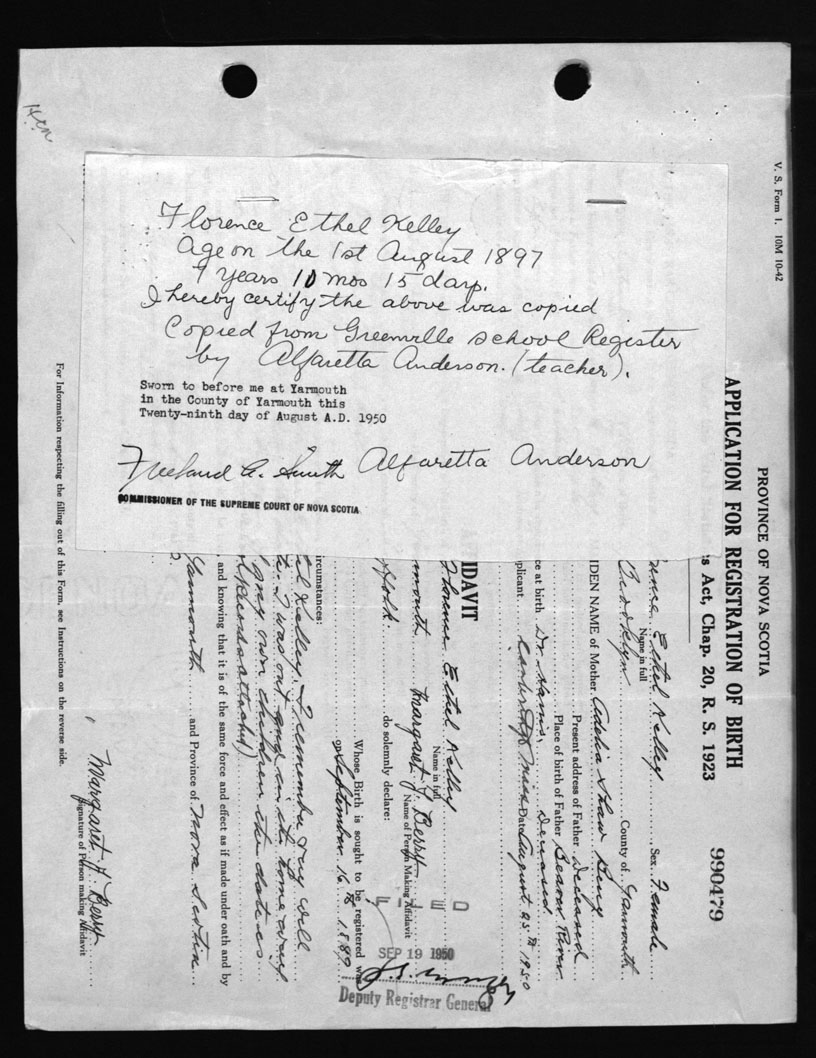 Florence Ethel Kelley
Age on the 1st August 1897
7 years 10 mos 15 days.
I hereby certify the above was copied
Copied from Greenville school Register
by Alfaretta Anderson. (teacher).
Sworn to before me at Yarmouth
in the County of Yarmouth this
Twenty-ninth day of August A.D. 1950
Smith Alfaretta Anderson
COMMISSIONER OF THE SUPREME COURT OF NOVA SCOTIA
V. S. Form 1. 10M 10-42
PROVINCE OF NOVA SCOTIA
APPLICATION FOR REGISTRATION OF BIRTH
s Act, Chap. 20, R. S. 1923
990479
Ethel Kelley Sex Female
Name in full
Brooklyn County of Yarmouth
IDEN NAME of Mother Adelia Shaw King
Present address of Father Deceased
Place of birth of Father Beaver River
ce at birth Dr Harris, Deceased
plicant Cambridge Mass Date August 25th 1950
IDAVIT
Florence Ethel Kelley
Name in full
mouth Margaret J. Berry
Name of Person Making Affidavit
ffolk. do solemnly declare:
Whose Birth is sought to be registered was
on September 16th 1889
ircumstances:
Kelley. I remember very well
I was out and in the home away
my own children the date is
(Record attached)
and knowing that it is of the same force and effect as if made under oath and by
Yarmouth and Province of Nova Scotia
Margaret J. Berry
Signature of Person making Affidavit
For Information respecting the filling out of this Form, see Instructions on the reverse side.
FILED
SEP 19 1950
Deputy Registrar General